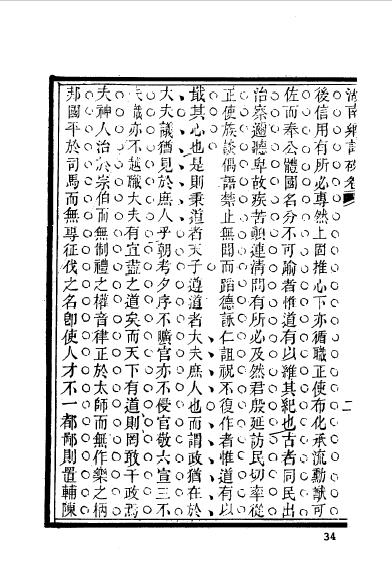 湖南鄉試硃卷
二
後信用有所必專然上固推心下亦循職正使布化承流動猷可
佐而奉公體國名分不可踰者惟道有以維其紀也古者同民出
治察邇聽卑故疾苦顛連清問有所必及然君殷延訪民切率從
正使族談偶語禁止無聞而蹈德詠仁詛祝不復作者惟道有以
戢其心也是則秉道者天子遵道者大夫庶人也而謂政猶在於
大夫議猶見於庶人乎朝考夕序不曠官亦不侵官敬六宣三不
失職亦不越職大夫有宜盡之道矣而天下有道則罔敢干政焉
夫神人治於宗伯而無制禮之權音律正於太師而無作樂之柄
邦國平於司馬而無專征伐之名即使人才不一都鄙則置輔陳
34